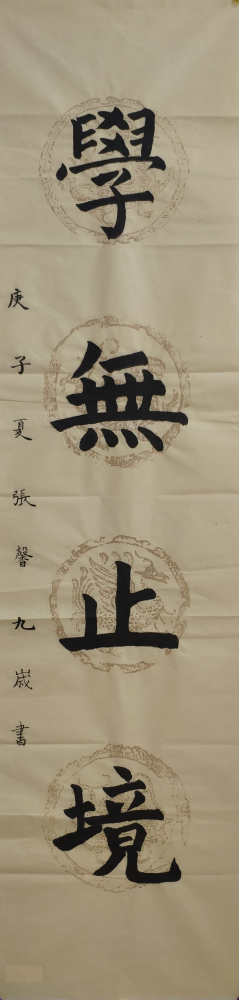 學無止境
庚子夏張馨九歲書